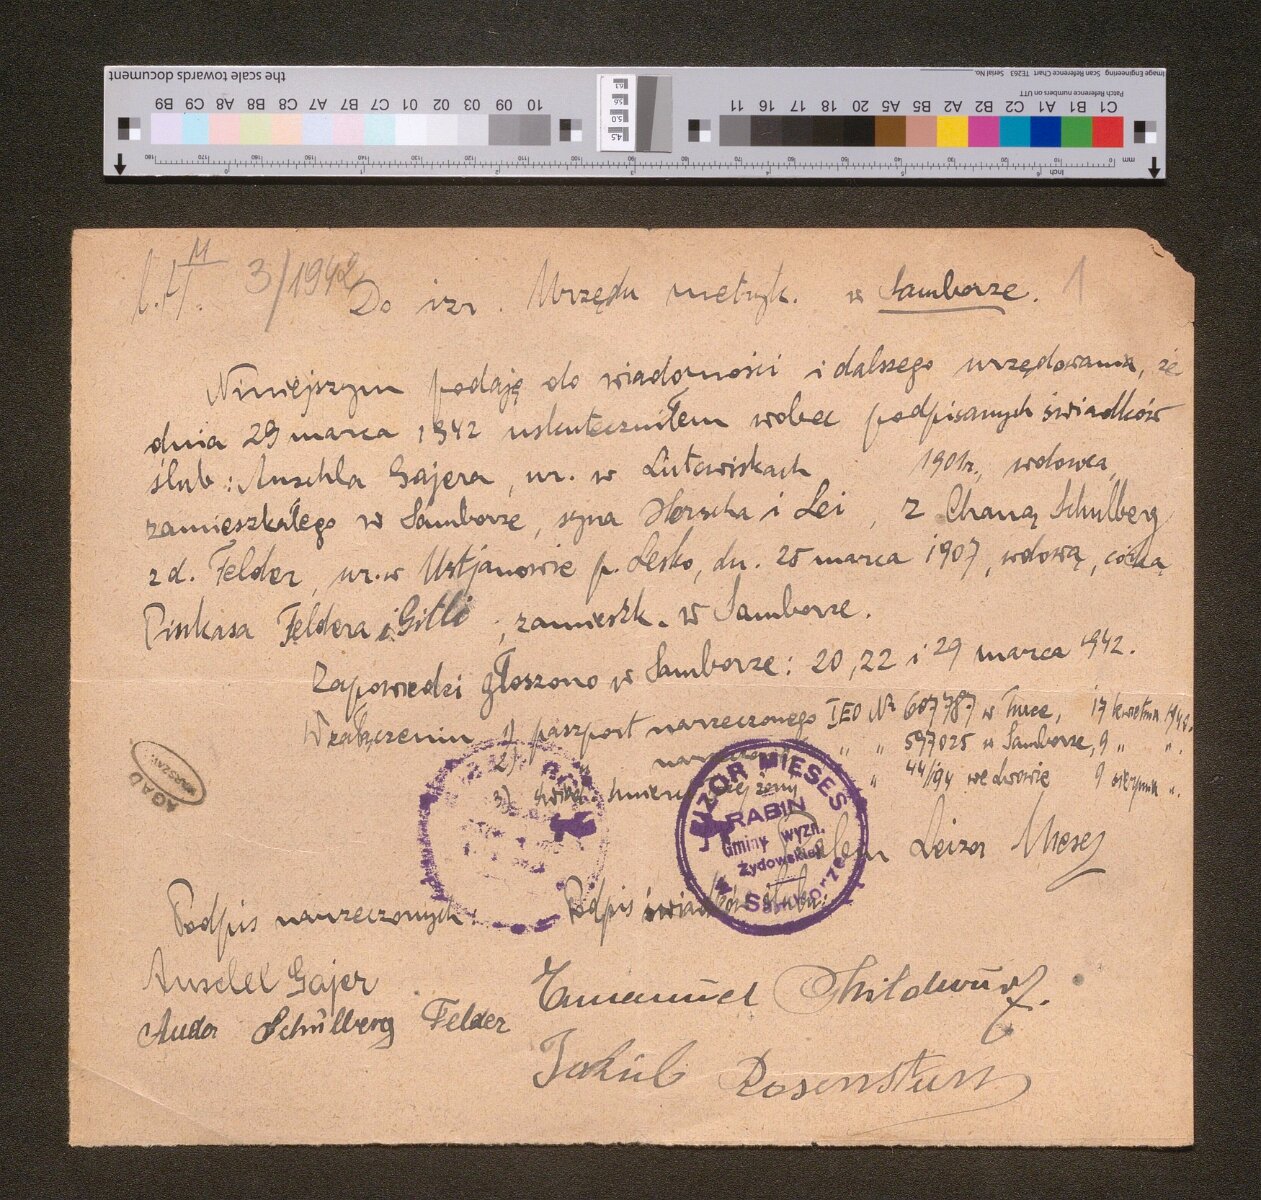 the scale towards document
Image Engineering Scan Reference Chart TE263 Serial No.
Patch Reference numbers on UTT
C1 B1 A1 C2 B2 A2 B5 A5 20 18 17 16 11
10 09 03 02 01 C7 B7 A7 C8 B8 A8 C9 B9
3/1942
Do izr. Urzędu metryk. w Samborze. 1
Niniejszym podaję do wiadomości i dalszego urzędowania, że
dnia 29 marca 1942 uskuteczniłem wobec podpisanych świadków
ślub: Anschla Gajera, ur. w Lutowiskach 1901 r., wdowca,
zamieszkałego w Samborze, syna Herscha i Lei, z Chaną Schulberg
z d. Felder, ur. w Ustjanowie p. Lesko, dn. 25 marca 1907, wdową, córką
Pinkasa Feldera i Gitli, zamieszk. w Samborze.
Zapowiedzi głoszono w Samborze: 20, 22 i 29 marca 1942.
W załączeniu 1) paszport narzeczonego IEO № 607787 w Turce, 17 kwietnia
2) " " 597025 w Samborze, 9 " ".
3) " 44/194 we Lwowie 9 sierpnia ".
LEIZOR MIESES
RABIN
Gminy wyzn.
Żydowskiej
w Samborze
Rabin Leizor Mieses
AGAD
WARSZAWA
Podpis narzeczonych Podpis świadków ślubu:
Anschel Gajer
Schulberg Felder
Emanuel
Jakub Rosenstein